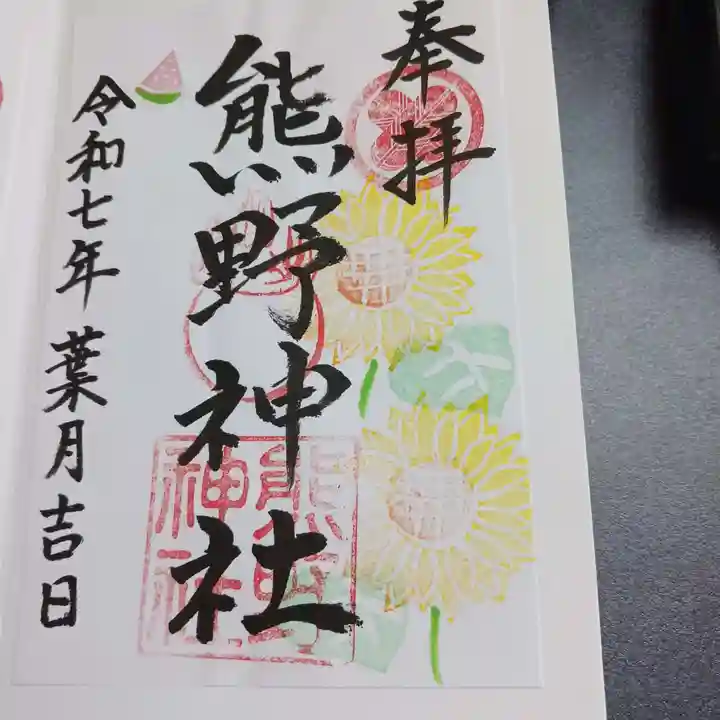 奉拝
熊野神社
令和七年葉月吉日
熊野
神社